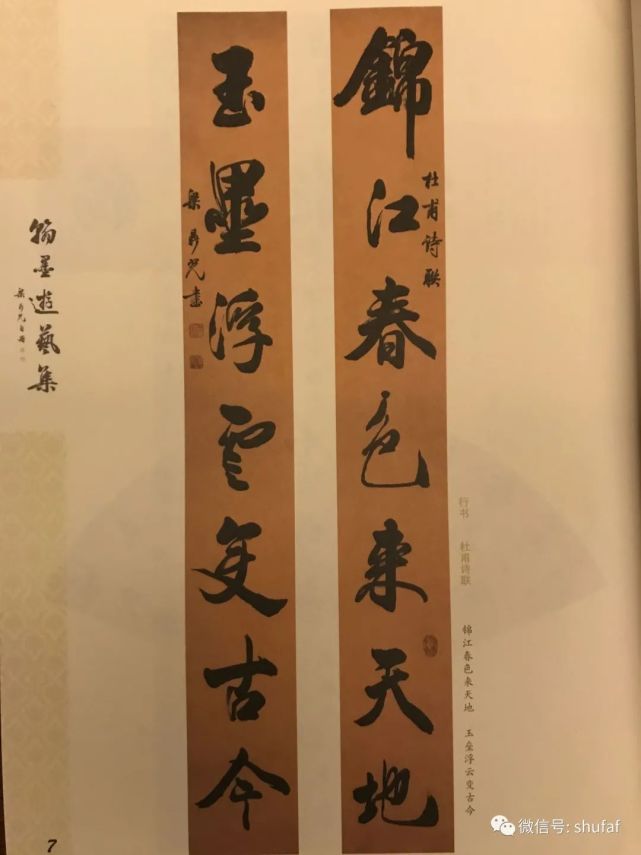 錦江春色来天地
杜甫诗联
玉壘浮雲变古今
翰墨遊藝集
行书 杜甫诗联 锦江春色来天地 玉垒浮云变古今
7
微信号: shufaf